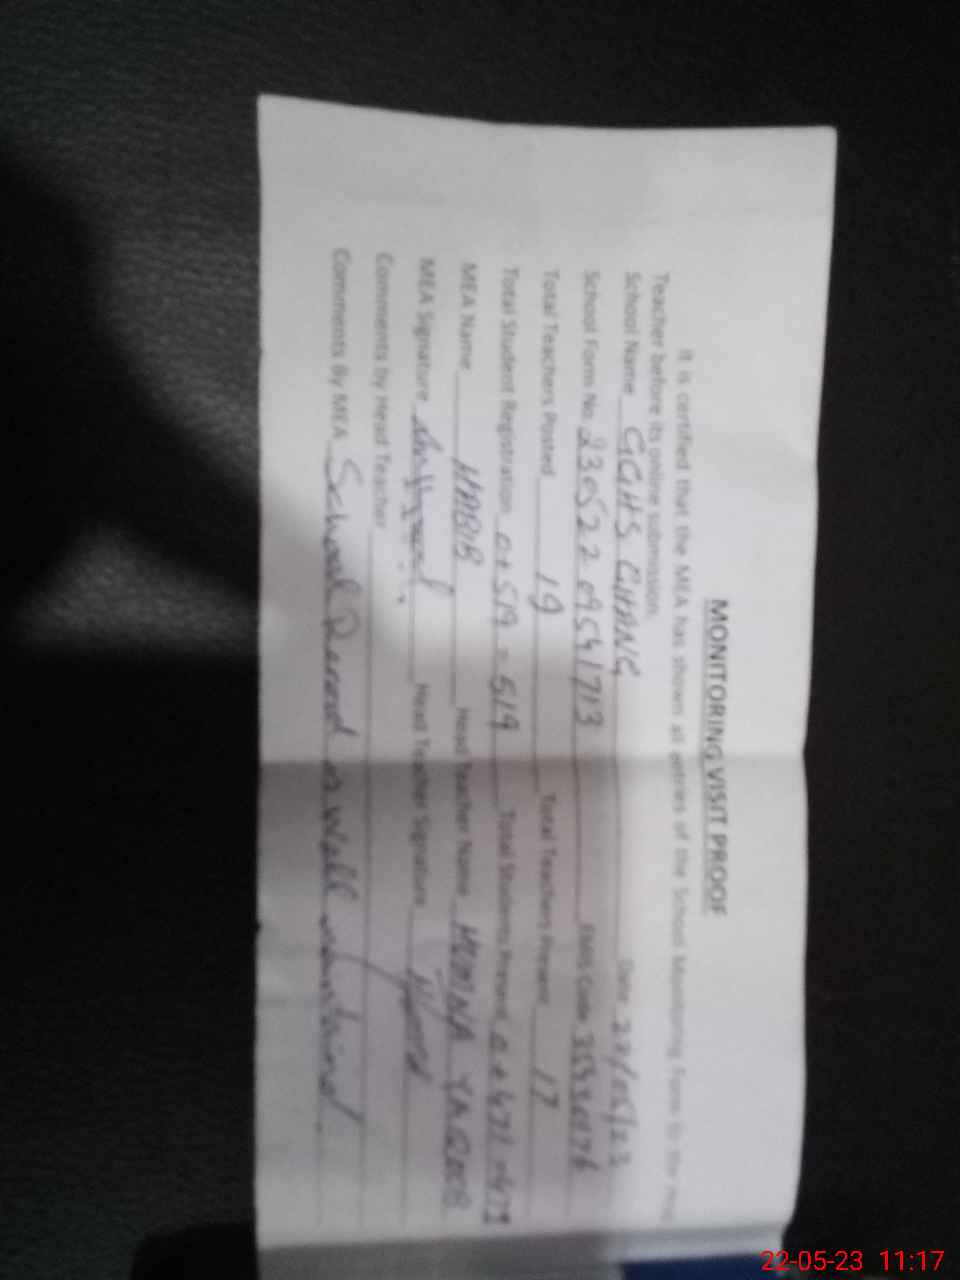 MONITORING VISIT PROOF
It is certified that the MEA has shown all entries of the School Monitoring Form to the Head
Teacher before its online submission.
School Name GGHS CHANG Date 22/05/23
School Form No 230522 0954713 EMIS Code
Total Teachers Posted 19 Total Teachers Present 17
Total Student Registration 0+519=519 Total Students Present 0+471=471
MEA Name HABIB Head Teacher Name MUMNA YAQOOB
MEA Signature Head Teacher Signature
Comments by Head Teacher
Comments By MEA School Record is Well maintained
22-05-23 11:17